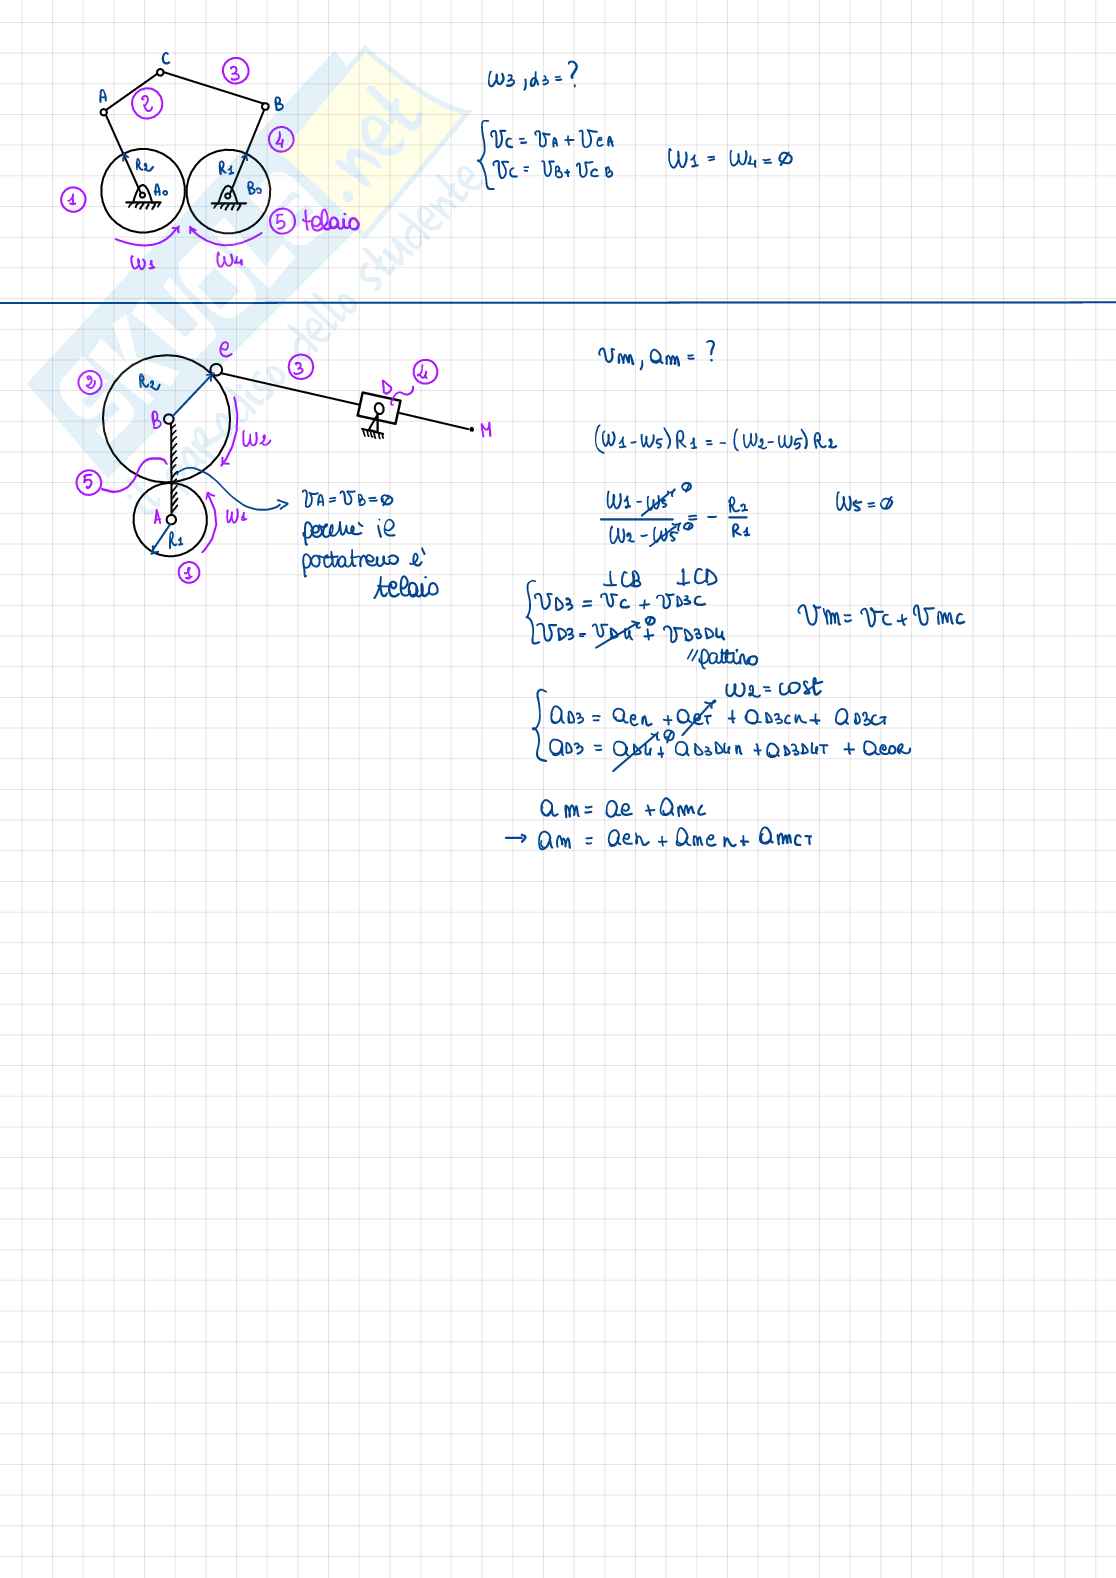 C
3
A
2
B
4
R2
R1
1
A0
B0
5 telaio
ω1
ω4
ω3, α3 = ?
vC = vA + vCA
vC = vB + vCB
ω1 = ω4 = ∅
SKUOLA.net
dello studente
C
2
3
4
R2
D
B
M
ω2
5
A
ω1
R1
1
vA = vB = ∅
perché il
portatreno è
telaio
vm, am = ?
(ω1-ω5)R1 = -(ω2-ω5)R2
ω1 - ω5 ∅ / ω2 - ω5 ∅ = - R2 / R1
ω5 = ∅
⊥CB ⊥CD
vD3 = vC + vD3C
vD3 = vD4 ∅ + vD3D4
// pattino
vm = vC + vmC
ω2 = cost
aD3 = aCn + aCT + aD3Cn + aD3CT
aD3 = aD4 ∅ + aD3D4n + aD3D4T + aCOR
am = aC + amC
→ am = aCn + amCn + amCT